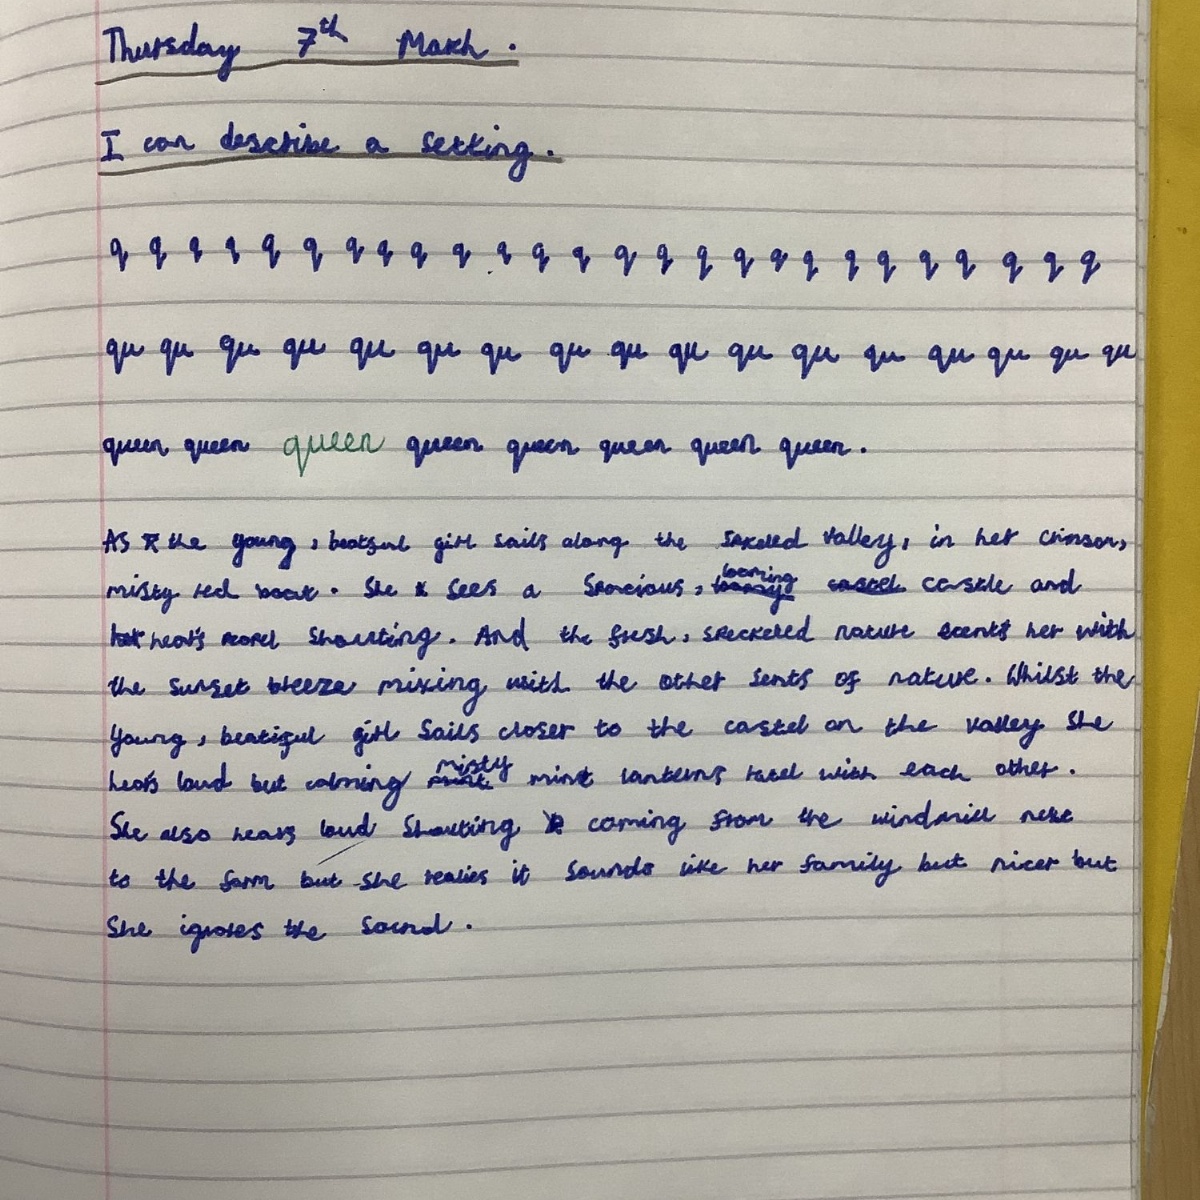 Thursday 7th March.
I can describe a setting.
q q q q q q q q q q q q q q q q q q q q q q q q q q
qu qu qu qu qu qu qu qu qu qu qu qu qu qu qu qu qu
queen queen queen queen queen queen queen queen.
As the young, girl sails along the valley, in her crimson,
misty red boat. She sees a looming castle and
hears shouting. And the fresh, speckeled nature scents her with
the sunset breeze mixing with the other sents of nature. Whilst the
young, beatiful girl sails closer to the castel on the valley she
hears loud but calming misty mint lanterns with each other.
She also hears loud shouting coming from the windmill next
to the farm but she realies it sounds like her family but nicer but
she ignores the sound.